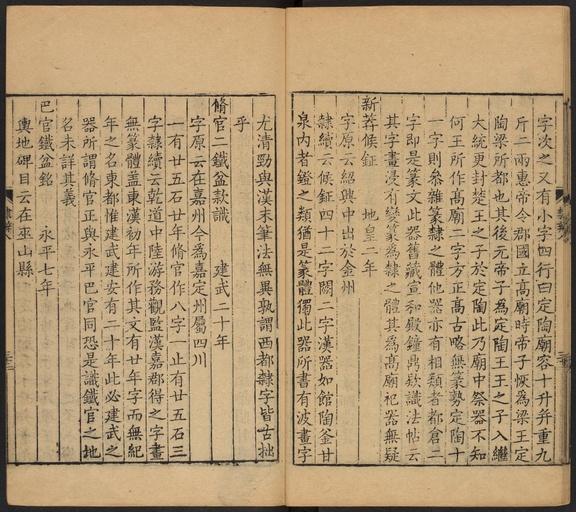 字次之又有小字四行曰定陶廟容十升并重九
斤二兩惠帝令郡國立高廟時帝子恢為梁王定
陶梁所都也其後元帝子為定陶王王之子入繼
大統更封楚王之子於定陶此乃廟中祭器不知
何王所作高廟二字方正高古略無篆勢定陶十
一字則參雜篆隸之體他器亦有相類者都倉二
字即是篆文此器舊識宣和殿鐘鼎欵識法帖云
其字畫浸有變篆為隸之體其為高廟祀器無疑
新莽候鉦 地皇二年
字原云紹興中出於金州
隸續云候鉦四十二字闕二字漢器如館陶釡甘
泉內者鐙之類猶是篆體獨此器所書有波畫字
尤清勁與漢末筆法無異孰謂西都隸字皆古拙
乎
脩官二鐵盆款識 建武二十年
字原云在嘉州今為嘉定州屬四川
隸續云乾道中陸游務觀監漢嘉郡得之字畫
一有廿五石廿年脩官作八字一止有廿五石三
字無篆體蓋東漢初年所作其文有廿年字而無紀
年之名東都惟建武建安有二十年此必建武之
器所謂脩官正與永平巴官同恐是識鐵官之地
名未詳其義
巴官鐵盆銘 永平七年
輿地碑目云在巫山縣